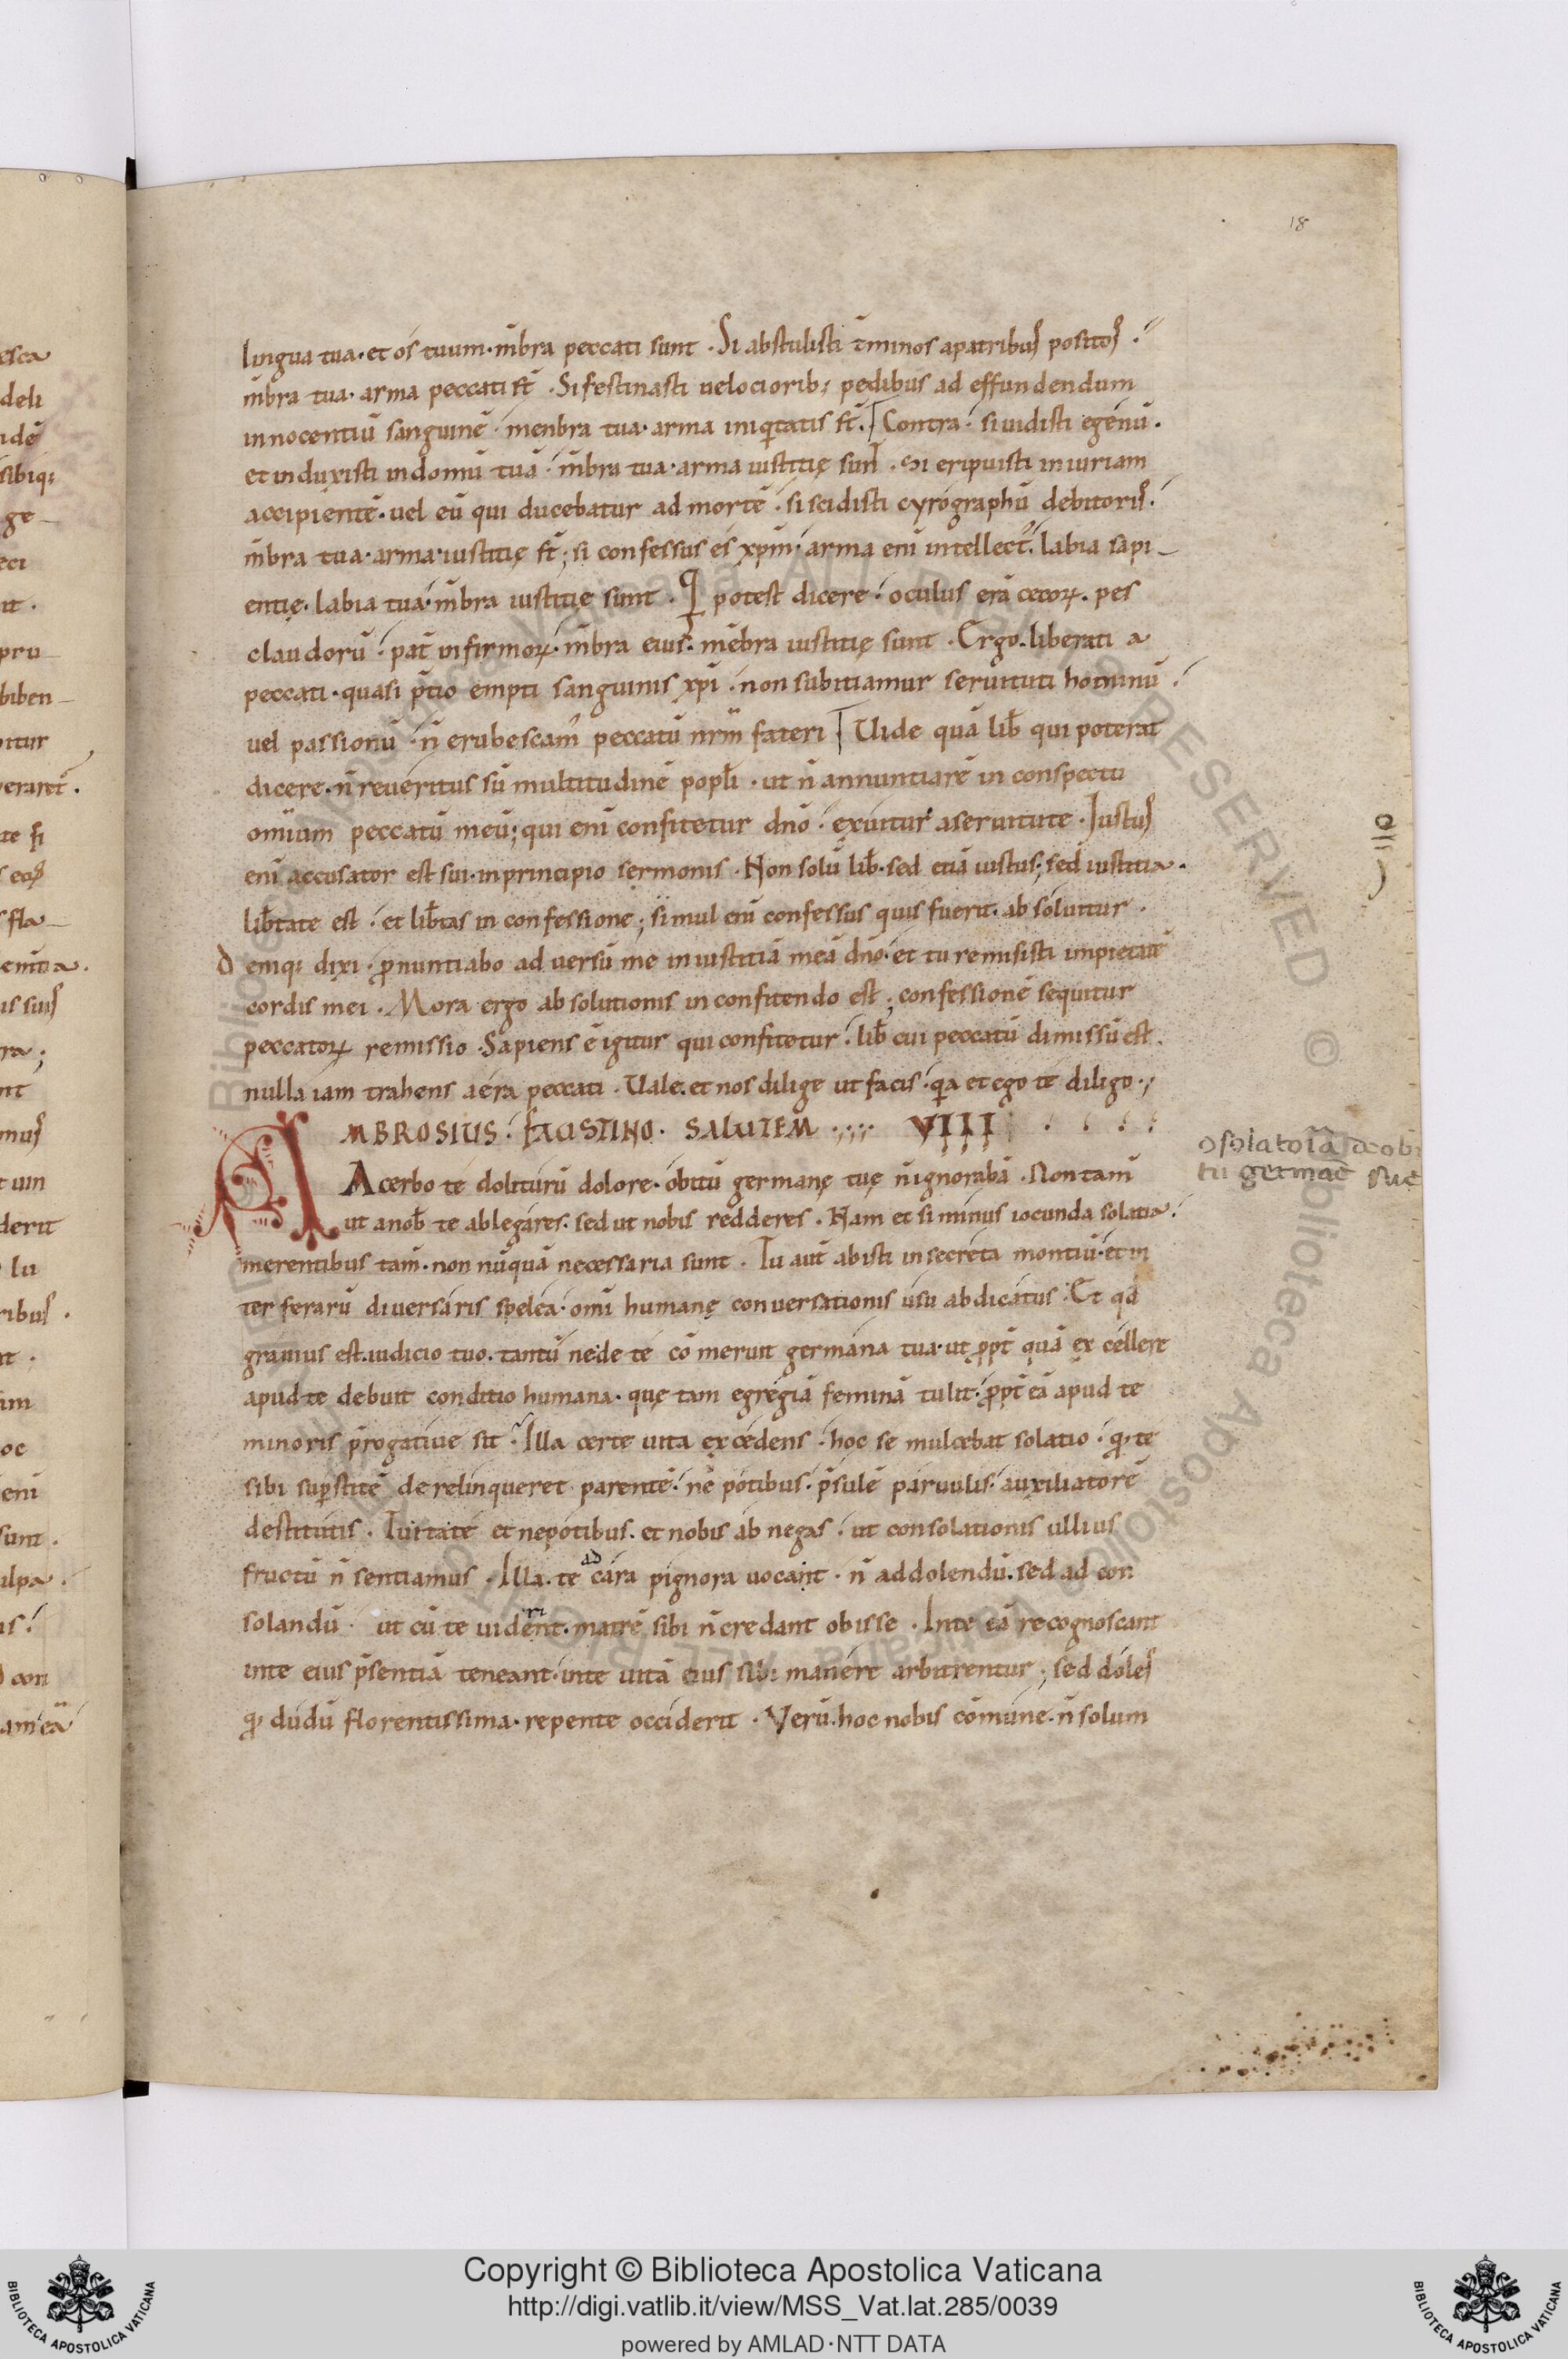 18
lingua tua · et os tuum · m̄bra peccati sunt · Si abstulisti t̄minos apatribus positos ·
m̄bra tua · arma peccati st̄ · Si festinasti uelociorib; pedibus ad effundendum
innocentiū sanguinē · menbra tua · arma iniqͥtatis st̄ · Contra · si uidisti egenū ·
et induxisti indomū tuā · m̄bra tua · arma iustitię sunt · Si eripuisti iniuriam
accipientē · uel eū qui ducebatur ad mortē · si scidisti cyrographū debitoris ·
m̄bra tua · arma · iustitię st̄ ; si confessus es xp̄m · arma enī intellect᾿ · labia sapi-
entię · labia tua · m̄bra iustitię sunt · Qͥ potest dicere · oculus erā cecoꝝ · pes
claudorū · pat̄ infirmoꝝ · m̄bra eius · mēbra iustitię sunt · Ergo · liberati a
peccati · quasi p̄tio empti sanguinis xp̄i · non subitiamur seruituti hominū ·
uel passionū · n̄ erubescam᾿ peccatū nr̄m fateri Uide quā lib̄ qui poterat
dicere · n̄ reueritus sū multitudinē popl̄i · ut n̄ annuntiarē in conspectu
omium peccatū meū ; qui enī confitetur dn̄o · exuitur aseruitute · Iustus
enī accusator est sui · inprincipio sermonis · Non solū lib̄ · sed etiā iustus ; sed iustitia ·
lib̄tate est · et lib̄tas in confessione ; simul enī confessus quis fuerit · absoluitur ·
d eniqꝫ dixi · ꝓnuntiabo aduersū me iniustitiā meā dn̄o · et tu remisisti impietatē
cordis mei · Mora ergo absolutionis inconfitendo est ; confessionē sequitur
peccatoꝝ remissio · Sapiens ē igitur qui confitetur · lib̄ cui peccatū dimissū est ·
nulla iam trahens aera peccati · Uale · et nos dilige ut facis · qͣa et ego te diligo ·;
AMBROSIUS · FAUSTINO · SALUTEM · VIII
Acerbo te doliturū dolore · obitū germanę tuę n̄ ignorabā · Non tam̄
ut anob̄ te ablegares · sed ut nobis redderes · Nam et si minus iocunda solatia ·
merentibus tam̄ · non nūquā necessaria sunt · Tu aut̄ abisti in secreta montiū · et in
ter ferarū diuersaris spelea · om̄i humanę conuersationis usu abdicatus · Et qd̄
grauius est · iudicio tuo · tantū nede te cō meruit germana tua · ut ꝓpt̄ quā excellere
apud te debuit conditio humana · quę tam egregiā feminā tulit · ꝓpt̄ eā apud te
minoris p̄rogatiue sit · Illa certe uita excedens · hoc se mulcebat solatio · qͩ te
sibi sup̄stitē derelinqueret parentē · nepotibus · p̄sulē paruulis · auxiliatorē
destitutis · Tu ita te et nepotibus · et nobis abnegas · ut consolationis ullius
fructū n̄ sentiamus · Illa · te ad cara pignora uocant · n̄ ad dolendū · sed ad con
solandū · ut cū te uiderint · matrē sibi n̄ credant obisse · Inte eā recognoscant
inte eius p̄sentiā teneant · inte uitā eius sibi manere arbitrentur ; sed doles
qͩ dudū florentissima · repente occiderit · Verū · hoc nobis cōmune · n̄ solum
ↄsolatoīa de obi
tu germāe sue
Copyright © Biblioteca Apostolica Vaticana
http://digi.vatlib.it/view/MSS_Vat.lat.285/0039
powered by AMLAD·NTT DATA